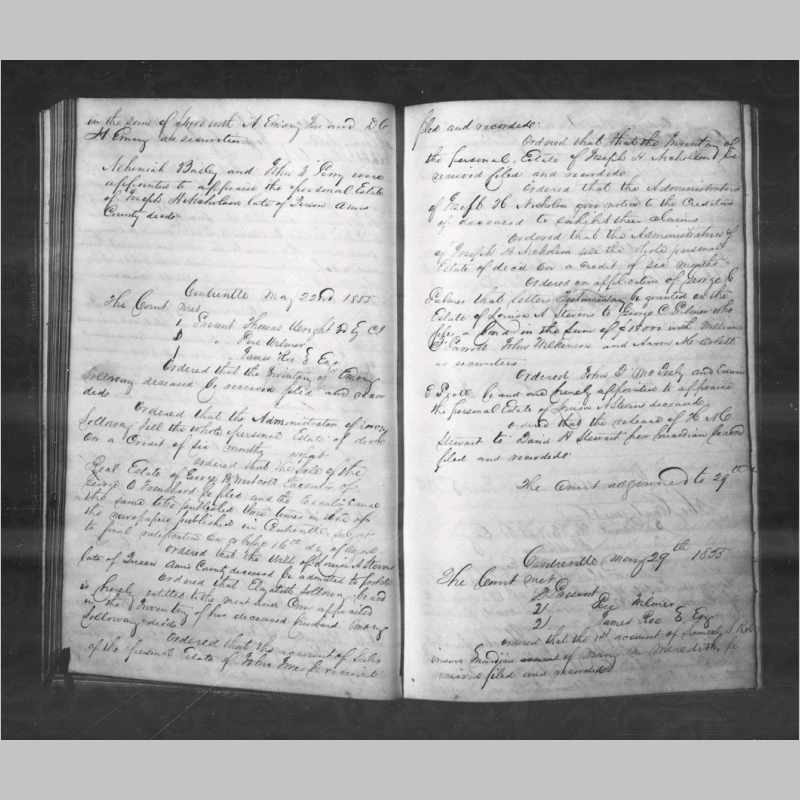 in the sum of with A Emory and D C
H Emory as securities
Nehemiah Bailey and John I were
appointed to appraise the personal Estate
of Joseph H Nicholson late of Queen Anns
County decd.
Centreville May 22nd 1855
The Court met
Present Thomas Wright Eq CJ
" Pere Wilmer
James Roe E Eqr
Ordered that the Inventory of Emory
Solloway deceased be received filed and recor
ded
Ordered that the Administration of Emory
Solloway sell the whole personal Estate of decd
on a Credit of six months
Ordered that the Sale of the
Real Estate of George Executor of
George be filed and the
the same to be published three times in one of
the newspapers published in Centreville
to final ratification on 16th day of
Ordered that the Will of Louisa A Stevens
late of Queen Anns County deceased be admitted to probate
Ordered that Elizabeth Solloway be and
is hereby entitled to the
in the Inventory of her deceased husband Emory
Solloway decd
Ordered that the account of Sales
of the personal Estate of John be received
filed and recorded.
Ordered that that the Inventory of
the personal Estate of Joseph H. Nicholson be
received filed and recorded
Ordered that the Administrators
of Joseph H Nicholson give notice to the Creditors
of deceased to exhibit their claims
Ordered that the Administrators of
of Joseph H Nicholson sell the whole personal
Estate of decd on a credit of six months
Ordered on application of George C
Palmer that letters Testamentary be granted on the
Estate of Louisa A Stevens to George C Palmer who
files a Bond in the sum of with William
Carroll John Wilkerson and Aaron
as securities
Ordered John D McFeely and Edwin
E be and are hereby appointed to appraise
the personal Estate of Louisa A Stevens deceased
Ordered that the release of H M C
Stewart to David H Stewart her Guardian be
filed and recorded
The Court adjourned to 29th
Centreville May 29th 1855
The Court met
Present
" Pere Wilmer
" James Roe E Eqr
Ordered that the 1st account of Rob
inson Guardian account of Mary Meredith be
received filed and recorded